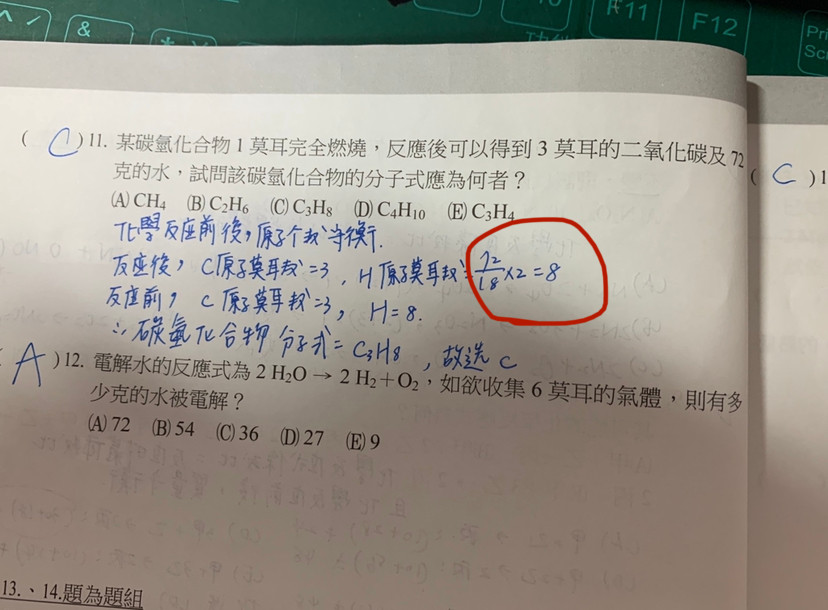 &
F11
F12
( C ) 11. 某碳氫化合物 1 莫耳完全燃燒，反應後可以得到 3 莫耳的二氧化碳及 72
克的水，試問該碳氫化合物的分子式應為何者？
(A) CH4 (B) C2H6 (C) C3H8 (D) C4H10 (E) C3H4
化學反應前後，原子个数守衡.
反应後，C原子莫耳数=3，H原子莫耳数=72/18×2=8
反应前，C原子莫耳数=3，H=8.
∴碳氫化合物分子式=C3H8，故选C
( A ) 12. 電解水的反應式為 2 H2O → 2 H2+O2，如欲收集 6 莫耳的氣體，則有多
少克的水被電解？
(A) 72 (B) 54 (C) 36 (D) 27 (E) 9
13.、14.題為題組
( C ) 1